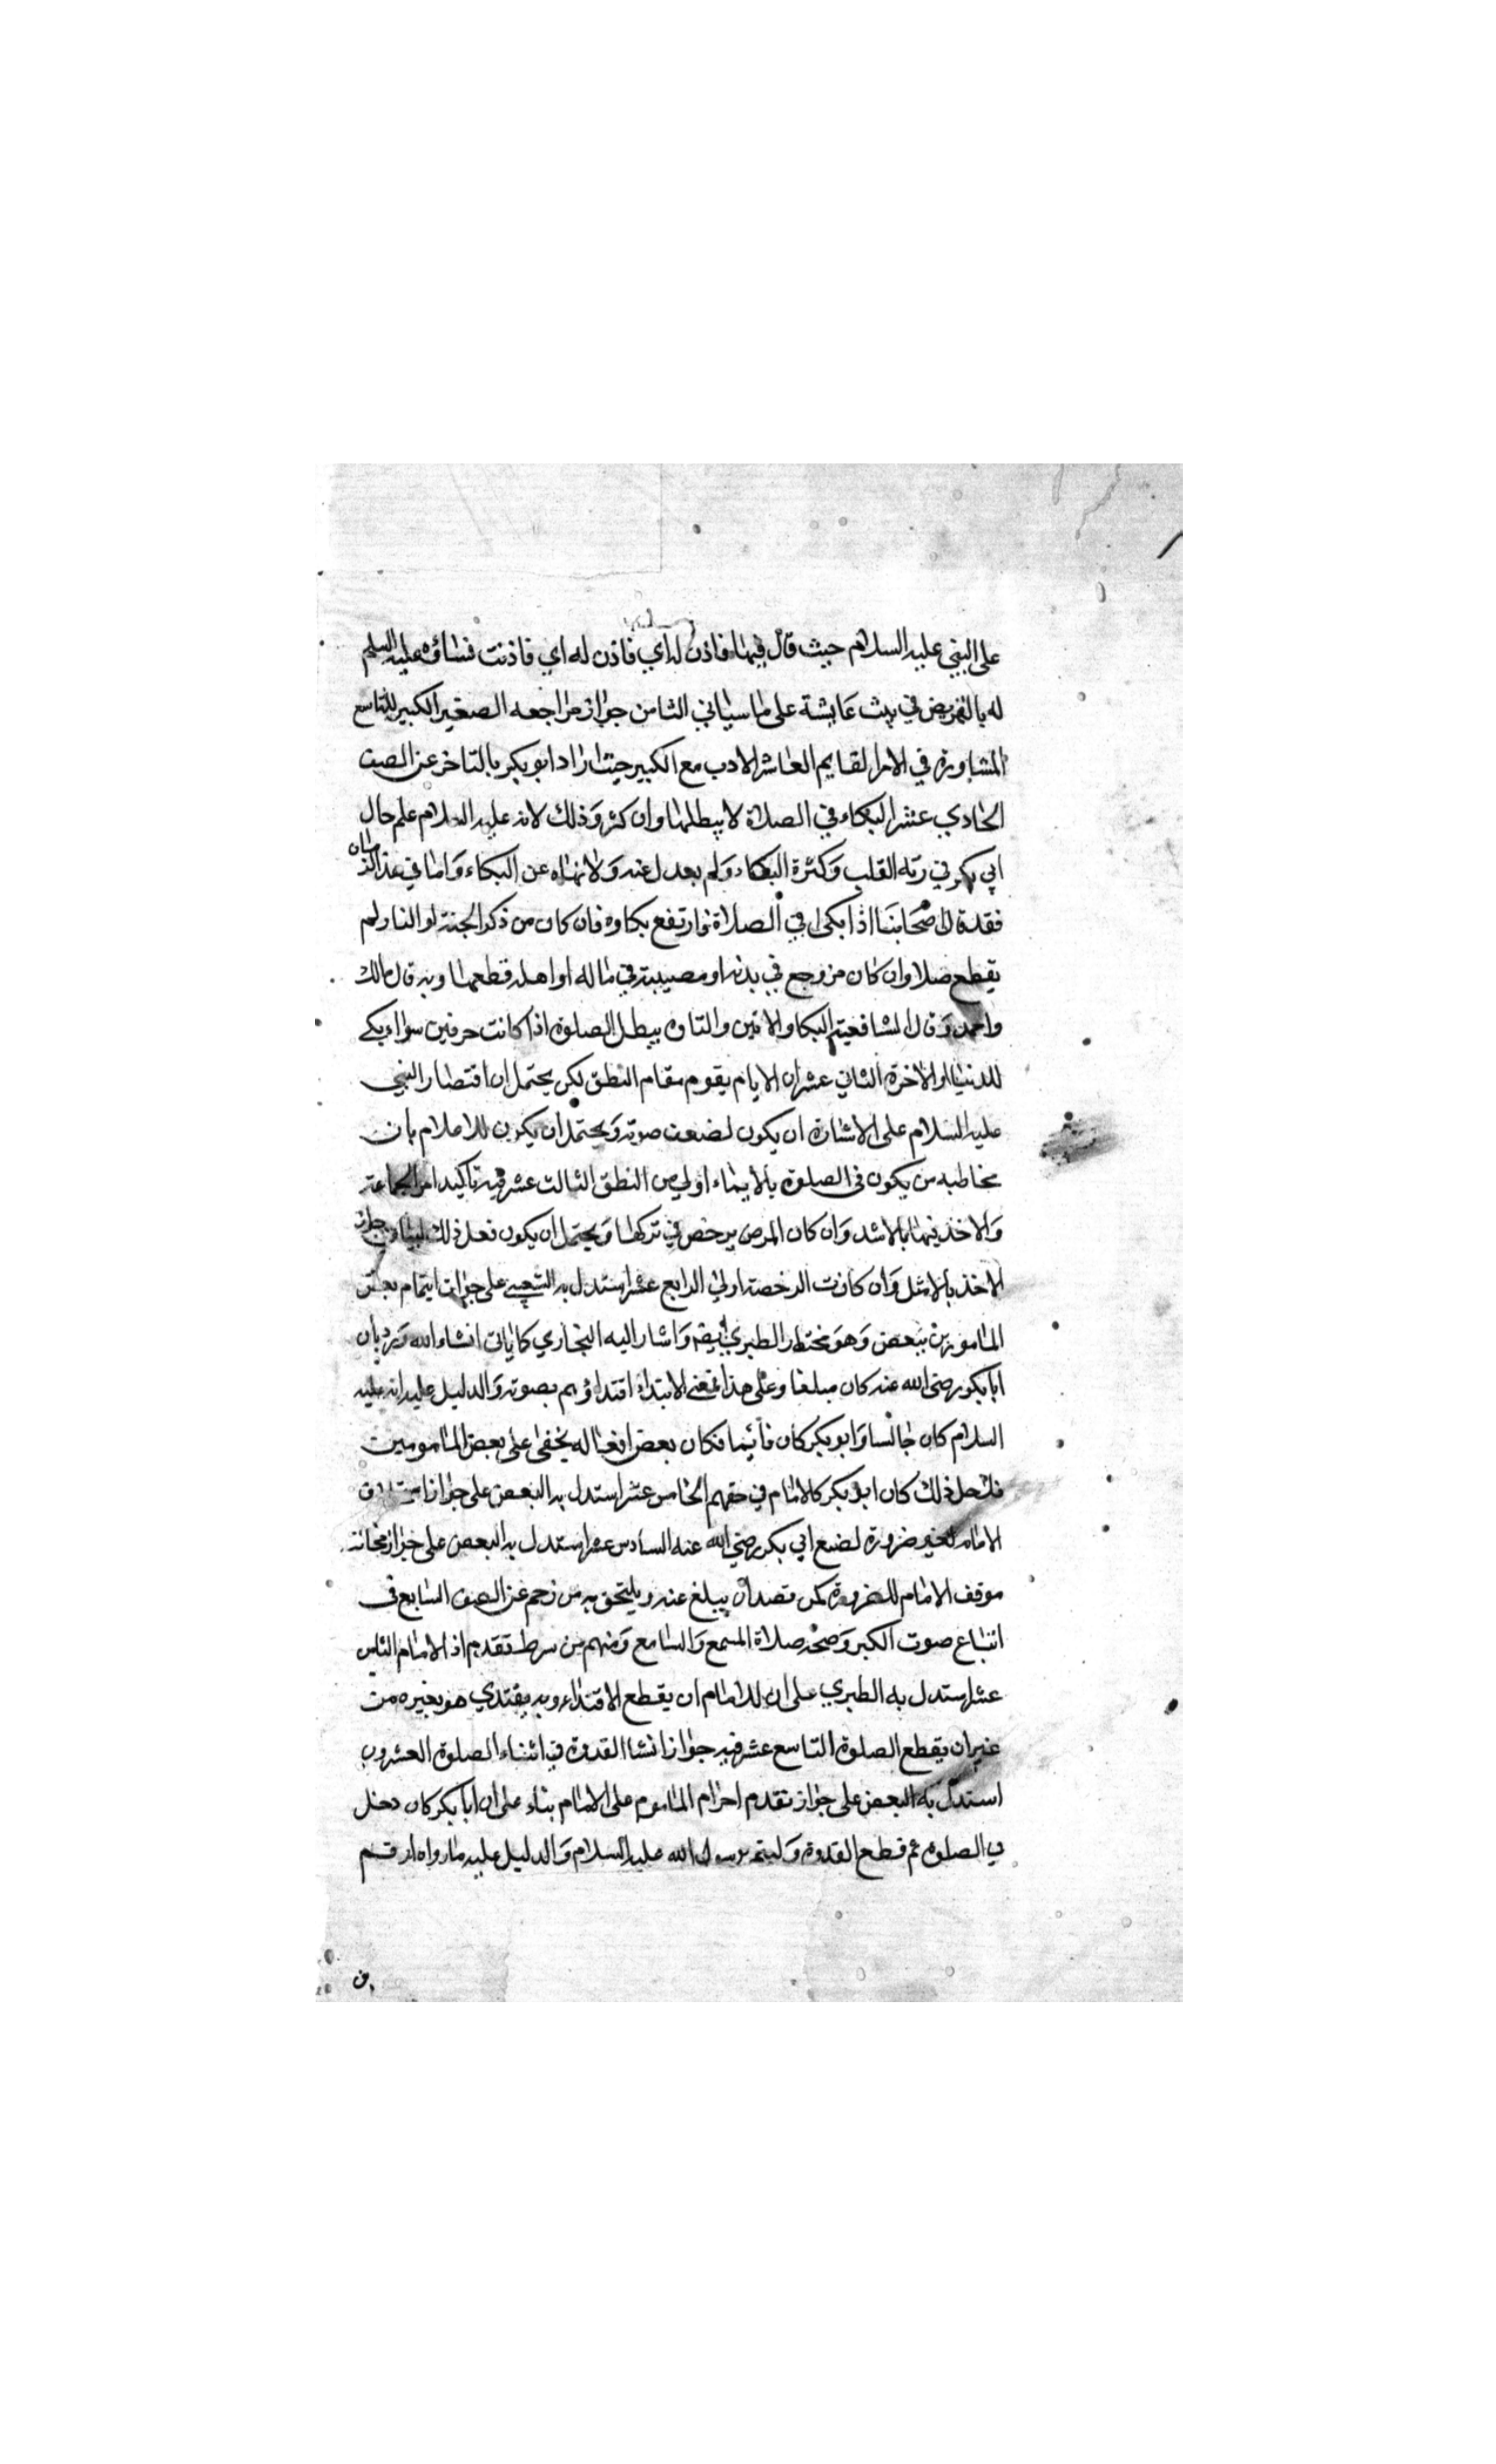 على النبي عليه السلام حيث قال فيها فاذن له اي فاذن له اي فاذنت نساؤه عليه السلم
له بالتمريض في بيت عايشة على ما سياتي الثامن جواز مراجعه الصغير الكبير التاسع
المشاورة في الامر لقايم العاشر الادب مع الكبير حيث اراد ابو بكر بالتاخر عن الصف
الحادي عشر البكاء في الصلاة لا يبطلها وان كثر وذلك لانه عليه السلام علم حال
ابي بكر في رقه القلب وكثرة البكاء ولم يعدل عنه ولا نهاه عن البكاء واما في هذا الزمان
فقد قال اصحابنا اذا بكى في الصلاة فارتفع بكاوه فان كان من ذكر الجنة او النار لم
يقطع صلا وان كان من وجع في بدنه او مصيبة في ماله او اهله قطعها وبه قال مالك
واحمد وقال الشافعية البكا والانين والتاوه يبطل الصلوة اذا كانت حرفين سواء بكى
للدنيا او الاخرة الثاني عشر ان الايام يقوم مقام النطق لكن يحتمل ان اقتصار النبي
عليه السلام على الاشارة ان يكون لضعف صوته ويحتمل ان يكون للاعلام بان
مخاطبه من يكون في الصلوة بالايماء اولى من النطق الثالث عشر فيه تاكيد امر الجماعة
والاخذ فيها بالاشد وان كان المرض يرخص في تركها ويحتمل ان يكون فعل ذلك لبيان جواز
الاخذ بالامثل وان كانت الرخصة اولى الرابع عشر استدل به الشعبي على جواز ايتمام بعض
المامومين ببعض وهو مختار الطبري ايضا واشار اليه البخاري كما ياتي انشاء الله ورد بان
ابا بكر رضي الله عنه كان مبلغا وعلى هذا فمعنى الابتداء اقتداؤهم بصوته والدليل عليه انه عليه
السلام كان جالسا وابو بكر كان قائيما فكان بعض افعاله يخفى على بعض المامومين
فلاجل ذلك كان ابو بكر كالامام في حقهم الخامس عشر استدل به البعض على جواز استخلاف
الامام لغير ضرورة لضع ابي بكر رضي الله عنه السادس عشر استدل به البعض على جواز مخالفة
موقف الامام للضرورة كمن قصد ان يبلغ عنه ويلتحق به من زحم عن الصف السابع في
اتباع صوت الكبر وصحة صلاة المسمع والسامع ومنهم من شرط تقدم اذ الامام الثامن
عشر استدل به الطبري على ان للامام ان يقطع الاقتداء وبه يقتدي هو بغيره من
غير ان يقطع الصلوة التاسع عشر فيه جواز انشا القدوة في اثناء الصلوة العشرون
استدل به البعض على جواز تقدم احرام الماموم على الامام بناء على ان ابا بكر كان دخل
في الصلوة ثم قطع القدوة وليتم برسول الله عليه السلام والدليل عليه ما رواه ارقم